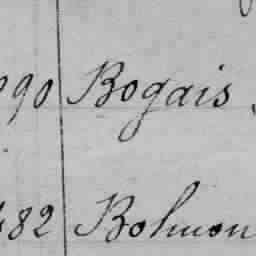 90 Bogais
482 Bolmon